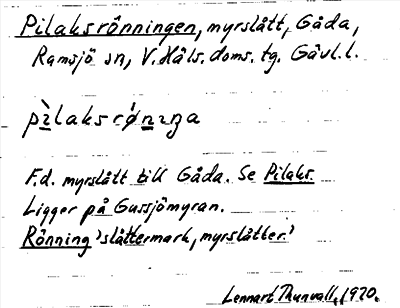 Pilaksrönningen, myrslått, Gåda,
Ramsjö sn, V. Häls. doms. tg. Gävl. l.
pìlaksrǿnıŋa
F.d. myrslått till Gåda. Se Pilaks.
Ligger på Gussjömyran.
Rönning 'slåttermark, myrslåtter.'
Lennart Thunvall, 1970.